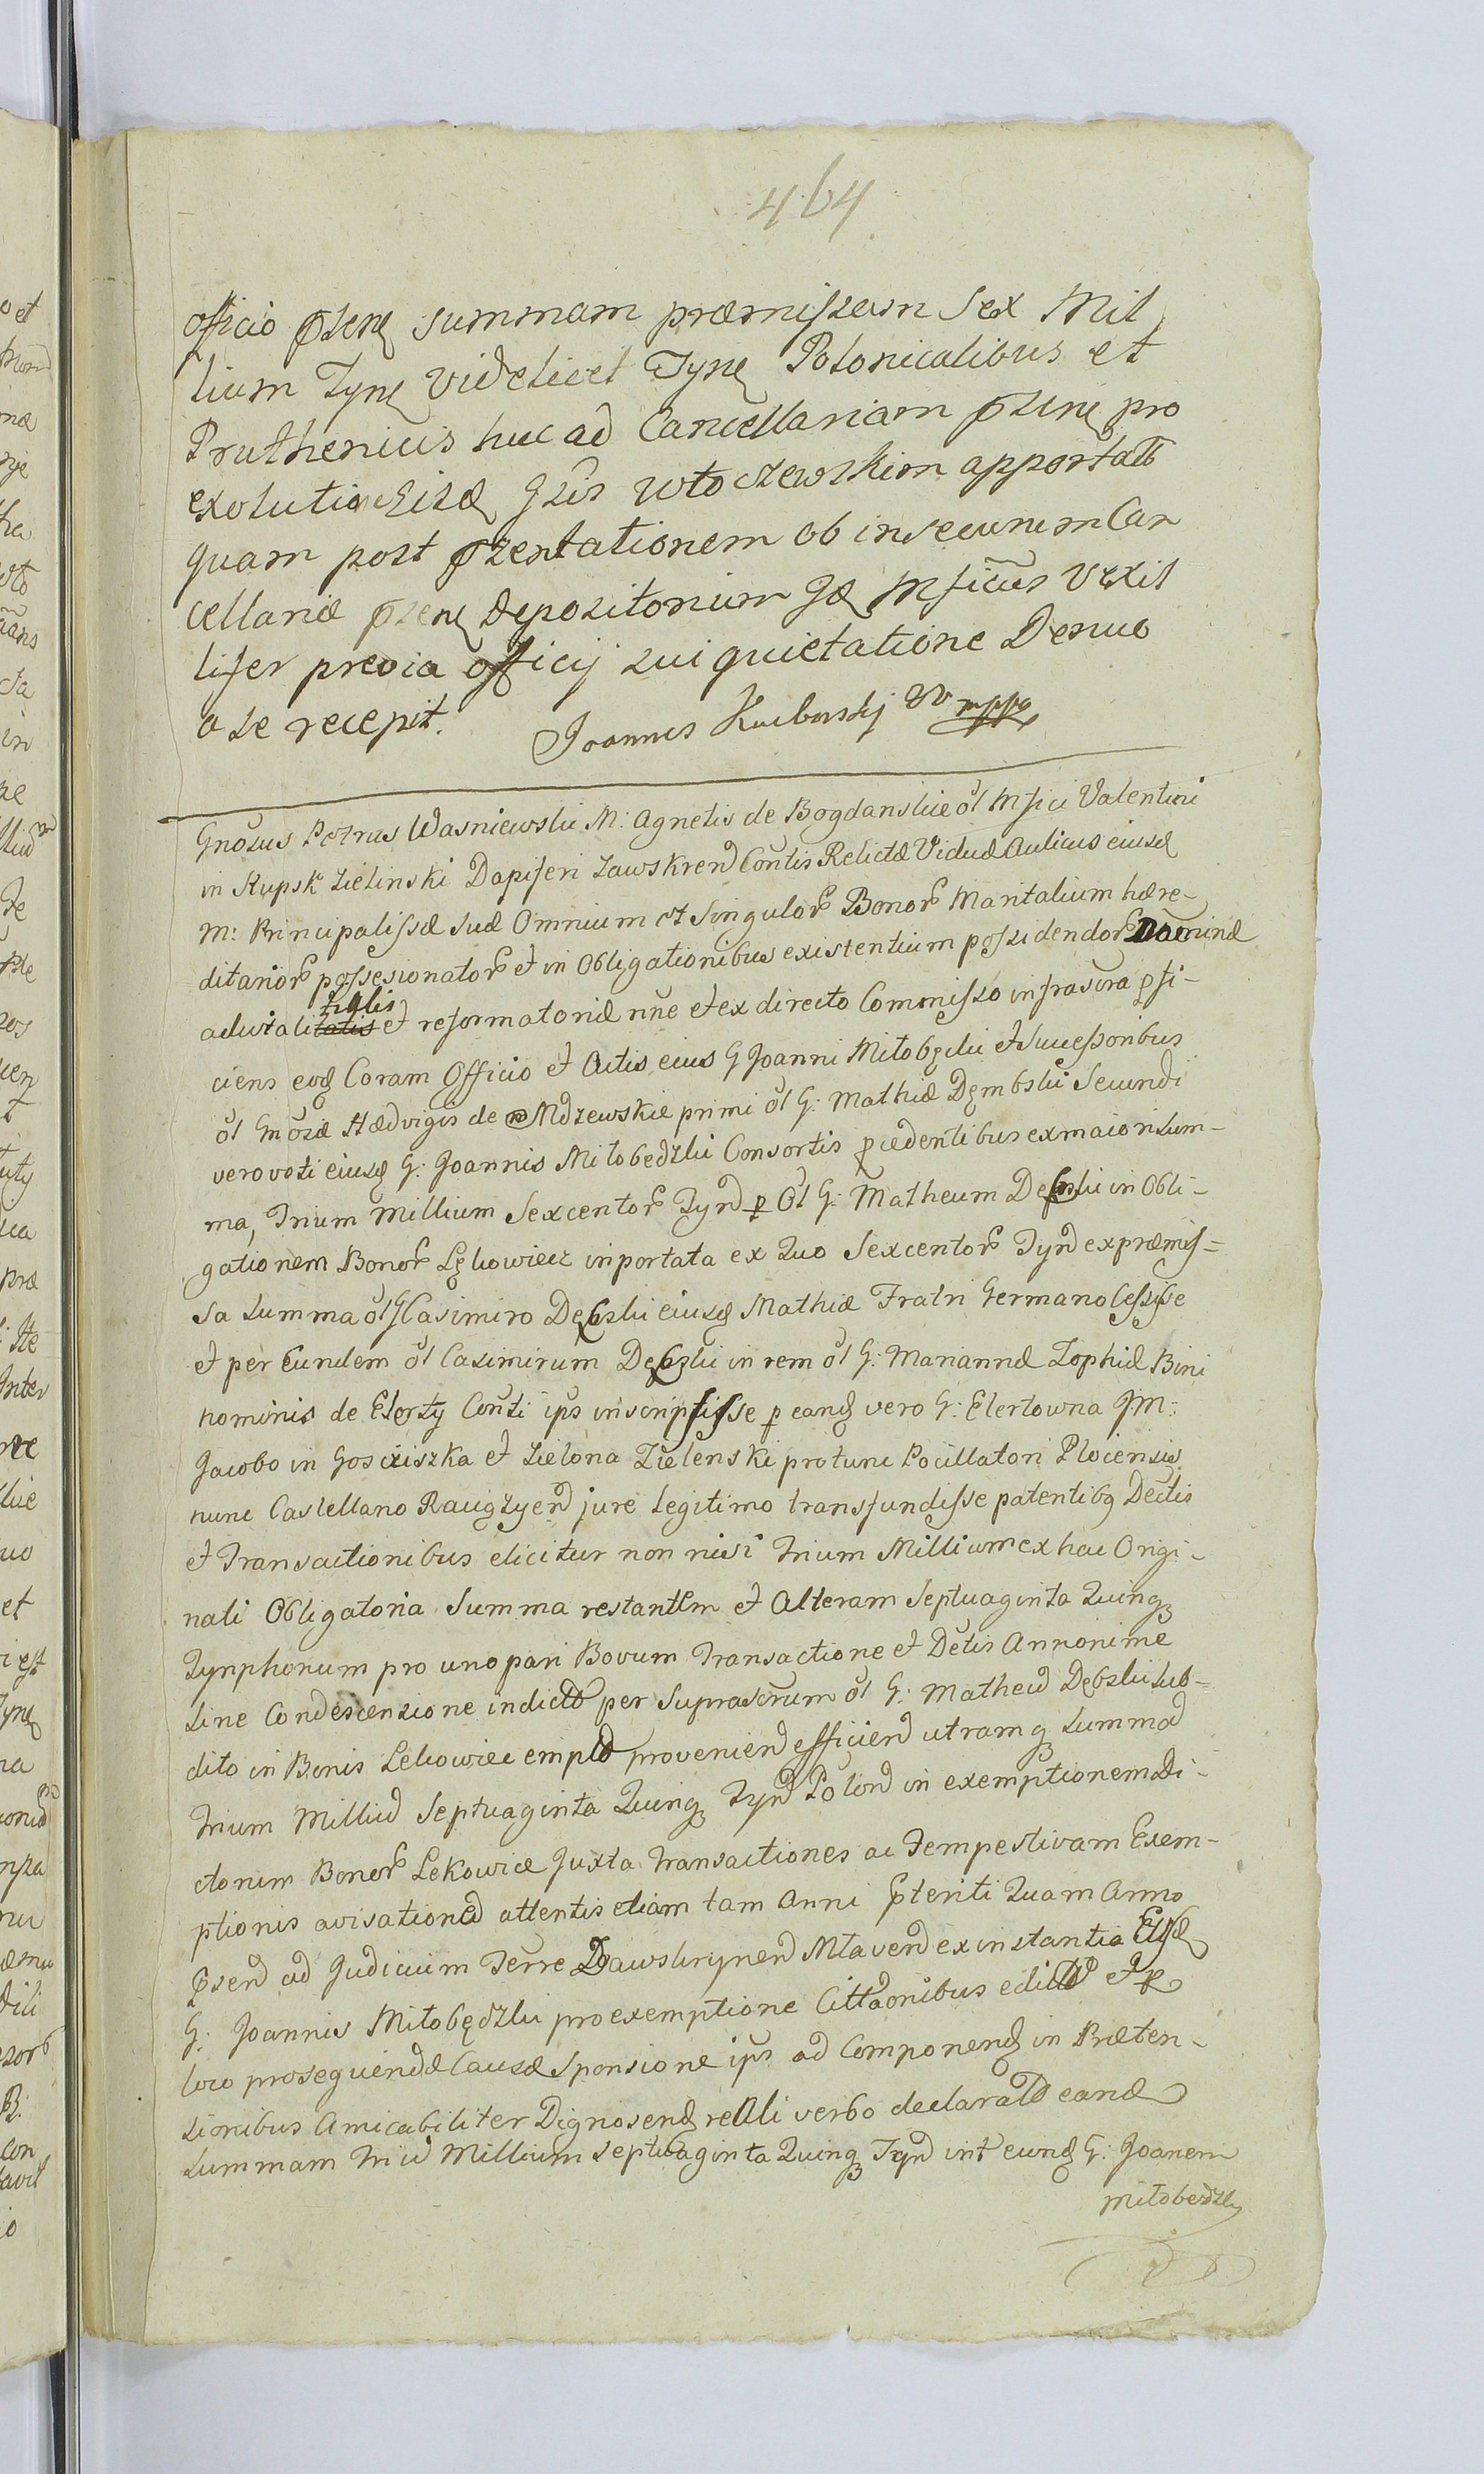 464
officio pszene summam præmissam Sex Mil
lium Tyne videlicet Tyne Polonicalibus et
Pruthenicis huc ad Cancellariam pszene pro
exolutione Gszis Wtoczewskim apportatt
quam post pszentationem ob insecurum Can
cellariæ pszene Depositorium Mficus Vexil
lifer previa officij sui quietatione Denuo
a se recepit. Joannes mppa
Gnosus Petrus Wasniewski M: Agnetis de Bogdanskie ol Mfici Valentini
in Rupsk Zielinski Dapiferi Zawskren Contis Relictæ Viduæ Aulicus eiusd
M: Principalissæ suæ Omnium et Singulor Bonor Maritalium hære-
ditarior possesionator et in Obligationibus existentium possidendor Dominæ
advitalitatis tialis et reformatoriæ nne et ex directo Commisso infrascra pfi-
ciens eoq Coram Officio et Actis eius G Joanni Mitobęcki et Successoribus
ol Gnosæ Hædvigis de Mdzewskie primi ol G: Mathiæ Dęmbski Secundi
vero voti eiusq G: Joannis Mitobedzki Consortis pcedentibus ex maiori sum-
ma, Trium Millium Sexcentor Tyn p Ol G: Matheum Debski in Obli-
gationem Bonor Lękowiecz inportata ex Quo Sexcentor Tyn ex præmis=
sa summa ol G Casimiro Dębski eiusq Mathiæ Fratri Germano Cessisse
et per Eundem ol Casimirum Dębski in rem ol G: Mariannæ Zophiæ Bini
nominis de Elerty Conti ips inscripsisse p eandq vero G: Elertowna JM:
Jacobo in Gosciszka et Zielona Zielenski protunc Pocillatori Plocensis
nunc Castellano Raigzyen jure legitimo transfundisse patentibq Dectis
et Transactionibus elicitur non nisi Trium Millium ex hac Origi-
nali Obligatoria Summa restantem et Alteram Septuaginta Quinq
Tynphonum pro uno pari Bovum Transactione et Detis Annonime
sine Condescensione indicto per Suprascrum ol G: Matheu Dębski sub-
dito in Bonis Lekowiec empto provenien efficien utramq summa
Trium Milliu Septuaginta Quinq Tyn Polon in exemptionem di-
ctorum Bonor Lekowice Juxta Transactiones ac Tempestivam Exem-
ptionis avisatione attentis etiam tam Anni pteriti Quam Anno
psen ad Judicium Terre Zawskrynen Mlaven ex instantia
G: Joannis Mitobędzki pro exemptione Cittaonibus editt et p
loco prosequendæ Causæ Sponsione ips ad Componend in Præten-
sionibus Amicabiliter Dignosend reali verbo declarato eand
summam Triu Millium Septuaginta Quinq Tyn int eundq G: Joanem
Mitobedzki